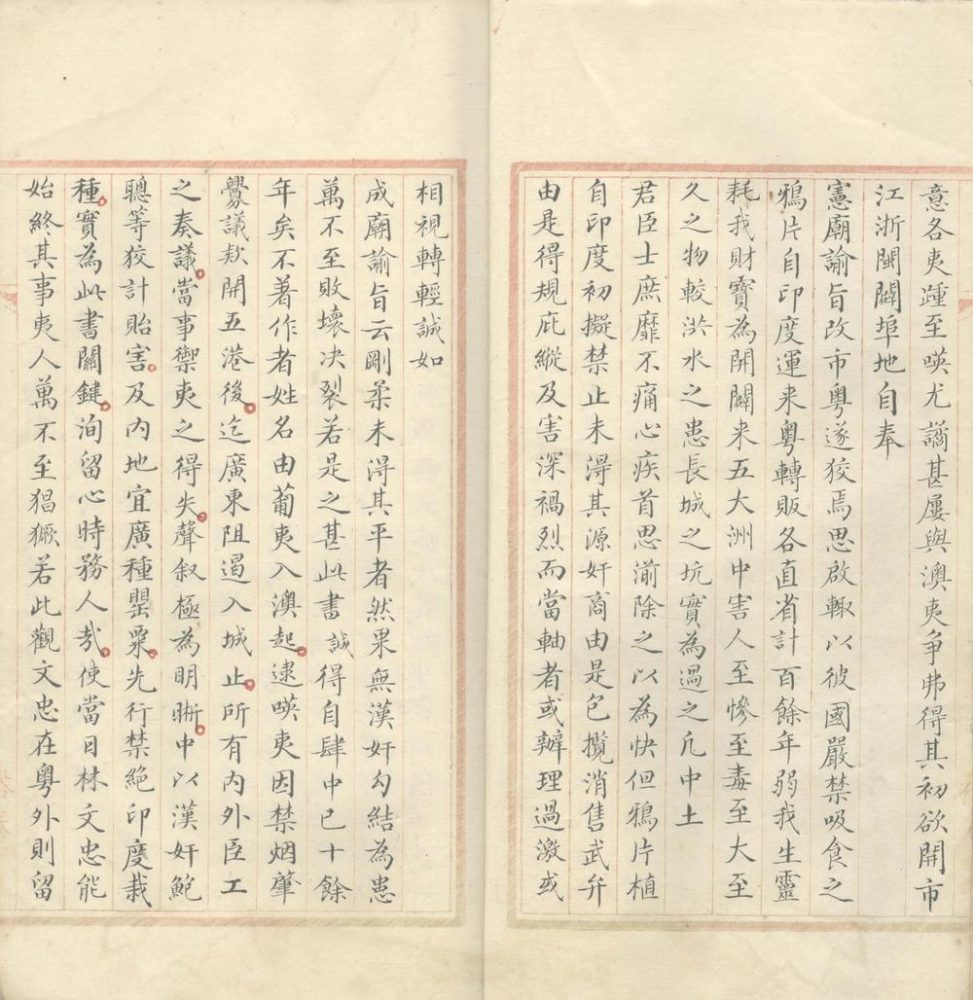 意各夷踵至暎尤譎甚屢與澳夷争弗得其初欲開市
江浙閩闢埠地自奉
憲廟諭旨改市粵遂狡焉思啟輙以彼國嚴禁吸食之
鴉片自印度運来粵轉販各直省計百餘年弱我生靈
耗我財寶為開闢来五大洲中害人至慘至毒至大至
久之物較洪水之患長城之坑實為過之凡中土
君臣士庶靡不痛心疾首思湔除之以為快但鴉片植
自印度初擬禁止未得其源奸商由是包攬消售武弁
由是得規庇縱及害深禍烈而當軸者或辦理過激或
相視轉輕誠如
成廟諭旨云剛柔未得其平者然果無漢奸勾結為患
萬不至敗壞决裂若是之甚此書誠得自肆中已十餘
年矣不著作者姓名由葡夷入澳起逮暎夷因禁烟肇
釁議欵開五港後迄廣東阻遏入城止所有内外臣工
之奏議當事禦夷之得失聲叙極為明晰中以漢奸鮑
聰等狡計貽害及内地宜廣種罌粟先行禁絶印度栽
種實為此書關鍵洵留心時務人哉使當日林文忠能
始終其事夷人萬不至猖獗若此觀文忠在粵外則留